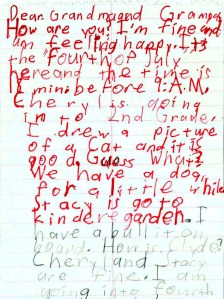 Dear Grandma and Grampa
How are you? I'm fine and
am feeling happy. It's
the fourth of July
here and the time is
min. before 1: A.M.
Cheryl is going
in to 2nd Grade.
I drew a picture
of a Cat and it is
good. Guess what?
We have a dog
for a little while
Stacy is go to
kindergarden. I
have a bulliton
board. How is Clyde?
Cheryl and Stacy
are fine. I am
going into fourth